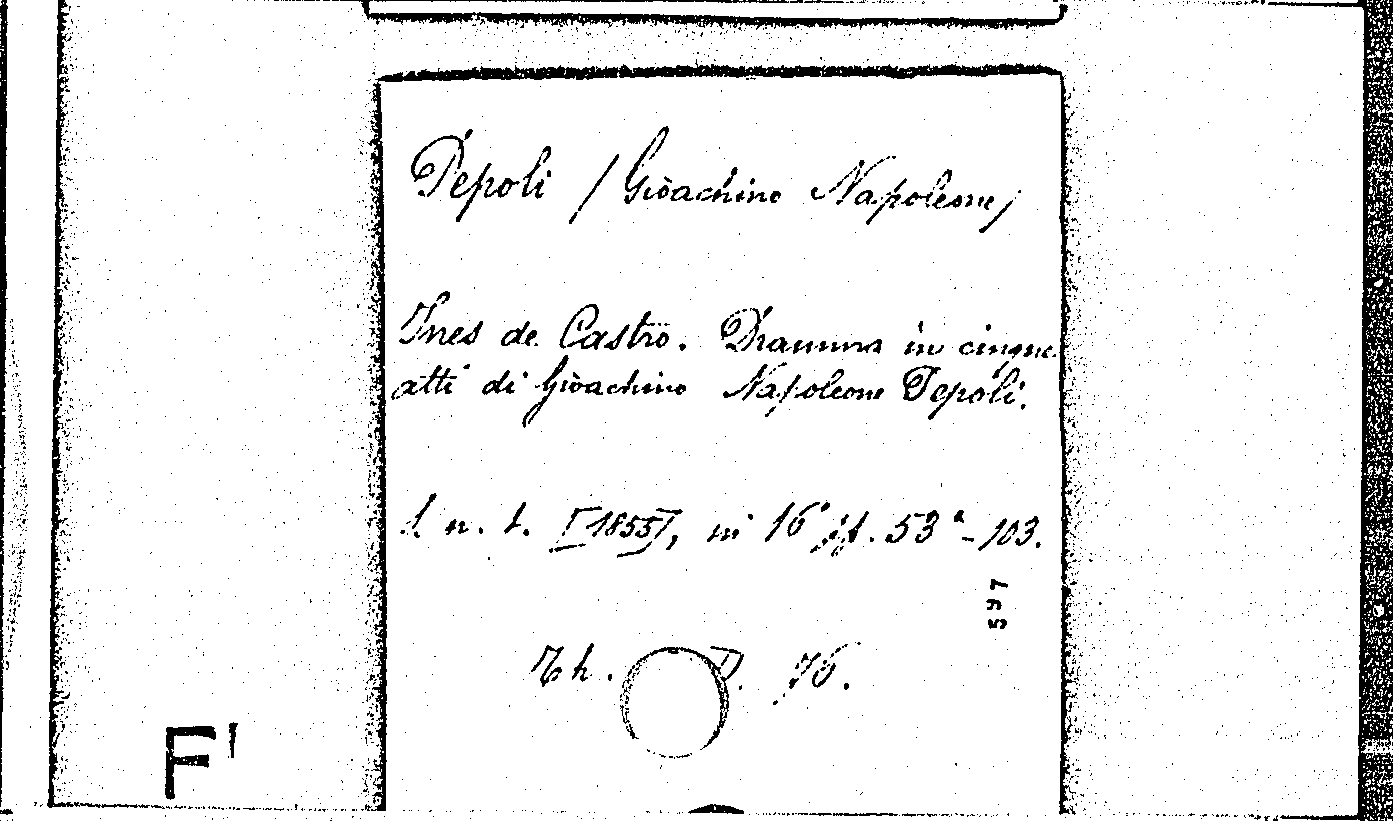 Pepoli /Gioachino Napoleone/
Ines de Castro. Dramma in cinque
atti di Gioachino Napoleone Pepoli.
l. n. t. [1855], in 16° ff. 53ª-103.
597
Th. P. 76.
F'